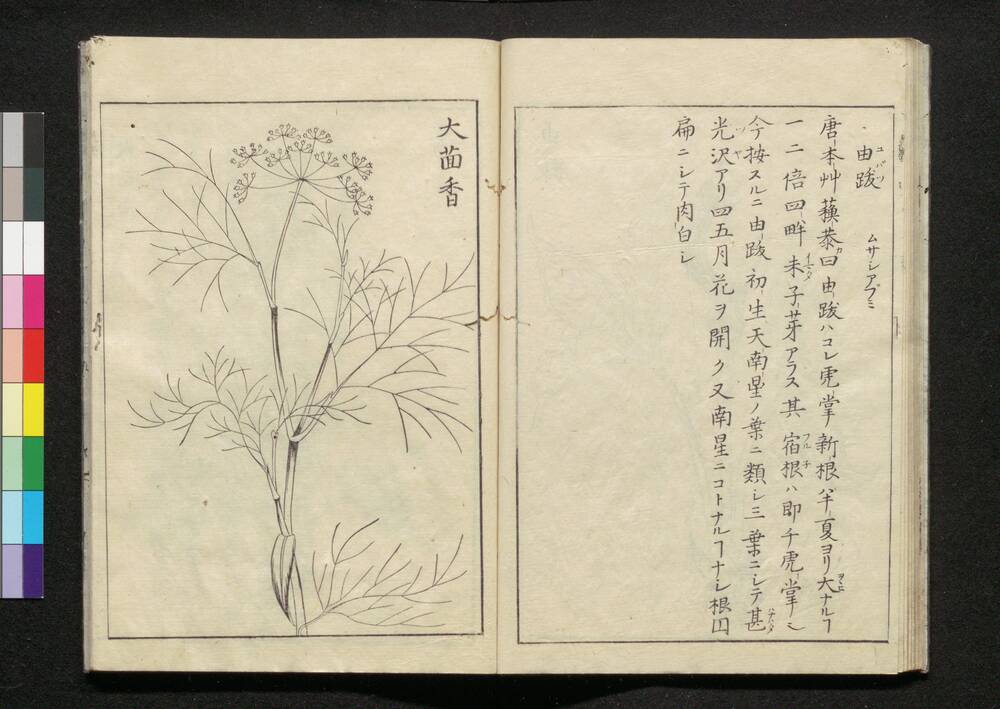 由跋 ユバツ ムサシアブミ
唐本艸蘓恭曰由跋ハコレ虎掌新根ハ半夏ヨリ大ナルヿ
一二倍四畔未子芽アラス其宿根ハ即チ虎掌ミ
今按スルニ由跋初生天南星ノ葉ニ類シ三葉ニシテ甚
光沢アリ四五月花ヲ開ク又南星ニコトナルヿナシ根
扁ニシテ肉白シ
大茴香